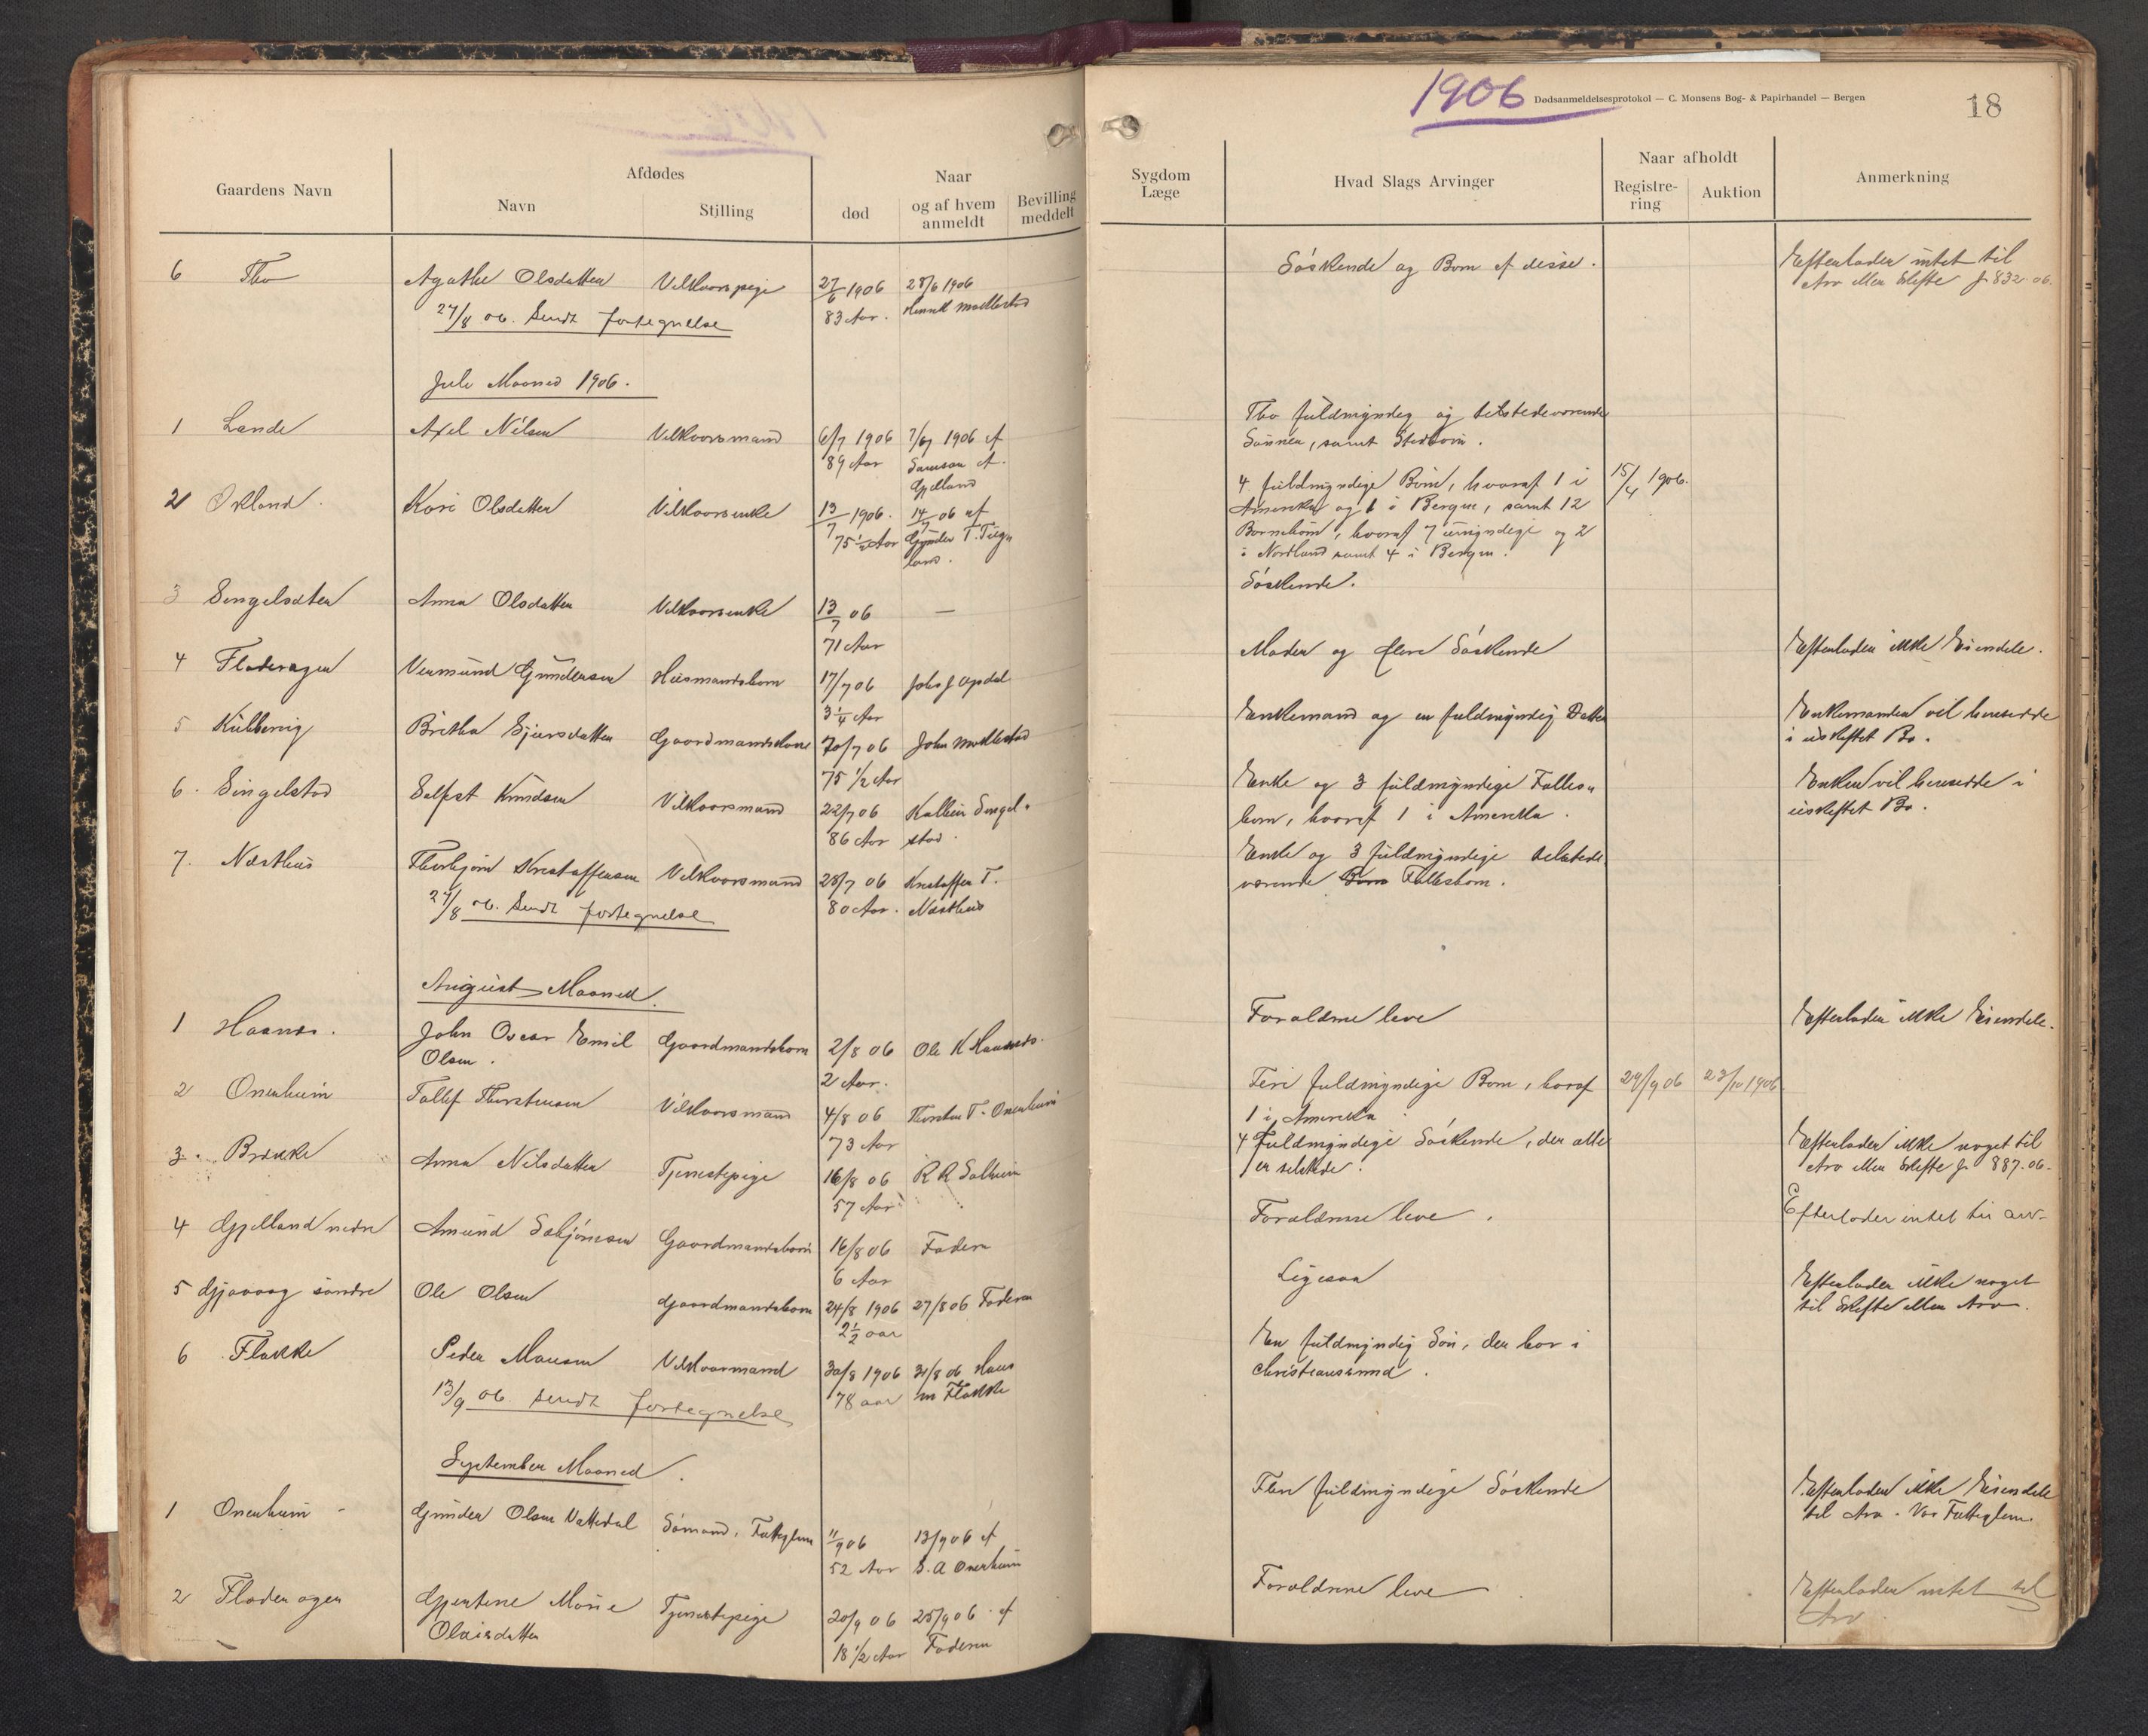 1906
Dødsanmeldelsesprotokol — C. Monsens Bog- & Papirhandel — Bergen
18
Gaardens Navn
Afdødes
Navn
Stilling
død
Naar
og af hvem
anmeldt
Bevilling
meddelt
Sygdom
Læge
Hvad Slags Arvinger
Naar afholdt
Registre-
ring
Auktion
Anmerkning
6 Tho
Agathe Olsdatter
Vilkaarspige
27/6 1906
83 Aar.
28/6 1906
27/8 06. Sendt fortegnelse
Søskende og Børn af disse.
Efterlader intet til
Arv eller Skifte J 832.06.
Juli Maaned 1906.
1 Lande
Axel Nilsen
Vilkaarsmand
6/7 1906
89 Aar
7/7 1906 af
Samson A.
Gjelland
To fuldmyndig og tilstedeværende
Sønner, samt Stedbørn.
2 Økland.
Kari Olsdatter
Vilkaarsenke
13/7 1906.
75 1/2 Aar
14/7 06 af
Gunder T.
4 fuldmyndige Børn, hvoraf 1 i
Amerika og 1 i Bergen, samt 12
Børnebørn, hvoraf 7 umyndige og 2
i Nordland samt 4 i Bergen.
15/4 1906.
3
Anna Olsdatter
Vilkaarsenke
13/7 06
71 Aar
—
Søskende.
4 Fladeragen
Vermund Gundersen
Husmandsbarn
17/7 06
3 1/4 Aar
Johs J Opdal
Moder og flere Søskende
Efterlader ikke Eiendele.
5
Britha Sjursdatter
Gaardmandskone
20/7 06
75 1/2 Aar
John
Enkemand og en fuldmyndig Datter
Enkemanden vil hensidde
i uskiftet Bo.
6. Singelstad
Knudsen
Vilkaarsmand
22/7 06
86 Aar
Singel-
stad
Enke og 3 fuldmyndige Fælles-
børn, hvoraf 1 i Amerika.
Enken vil hensidde i
uskiftet Bo.
7. Næsthus
Thorbjørn Kristoffersen
Vilkaarsmand
28/7 06
80 Aar.
Kristoffer T.
Næsthus
27/8 06. Sendt fortegnelse
Enke og 3 fuldmyndige tilstede
værende Børn Fællesbørn.
August Maaned.
1 Haanes.
John Oscar Emil
Olsen.
Gaardmandsbarn
2/8 06
2 Aar.
Ole K Haanes.
Forældrene leve
Efterlader ikke Eiendele.
2 Onerheim
Tollef Thorstensen
Vilkaarsmand
4/8 06
73 Aar
Thorsten T. Onerheim
fuldmyndige Børn, hvoraf
1 i Amerika
24/9 06
23/10 1906
3.
Anna Nilsdatter
Tjenestepige
16/8 06
57 Aar
R R Solheim
4 fuldmyndige Søskende, der alle
er tilstede.
Efterlader ikke noget til
Arv eller Skifte J. 887.06.
4 Gjelland nedre
Amund
Gaardmandsbarn
16/8 06
6 Aar
Faderen
Forældrene leve.
Efterlader intet til arv.
5 Gjøvaag søndre
Ole Olsen
Gaardmandsbarn
24/8 1906
2 1/2 aar
27/8 06 Faderen
Ligesaa
Efterlader ikke noget
til Skifte eller Arv.
6 Flakke
Peder Monsen
Vilkaarmand
30/8 1906
78 aar
31/8 06 Hans
Flakke
13/9 06. sendt fortegnelse
En fuldmyndig Søn, der bor i
Christianssund.
September Maaned.
1 Onerheim
Gunder Olsen Vattedal
Sømand, Fattiglem
11/9 06
52 Aar
13/9 06 af
S. A Onerheim
Flere fuldmyndige Søskende
Efterlader ikke Eiendele
til Arv. Var Fattiglem.
2 Fladeragen
Gjertine Marie
Olaisdatter
Tjenestepige
20/9 06
18 1/2 Aar
25/9 06 af
Faderen
Forældrene leve
Efterlader intet til
Arv